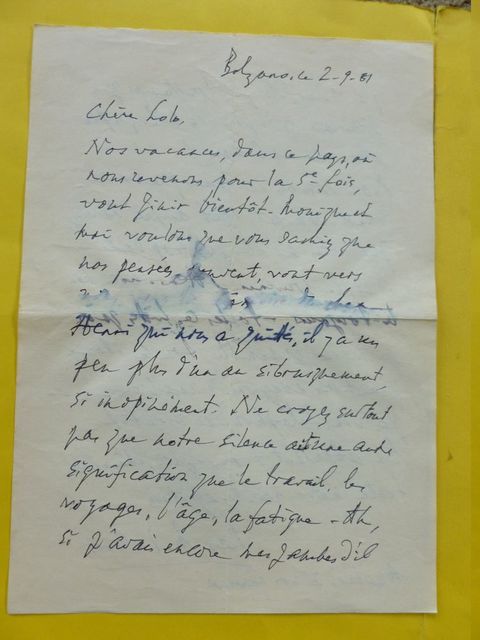 Bolzano, ce 2-9-81
Chère Lola,
Nos vacances, dans ce pays, où
nous revenons pour la 5e fois,
vont finir bientôt. Monique et
moi voulons que vous sachiez que
nos pensées, souvent, vont vers
Henri qui nous a quittés, il y a un
peu plus d'un an si brusquement,
si inopinément. Ne croyez surtout
pas que notre silence ait une autre
signification que le travail, les
voyages, l'âge, la fatigue - Ah,
si j'avais encore mes jambes d'il